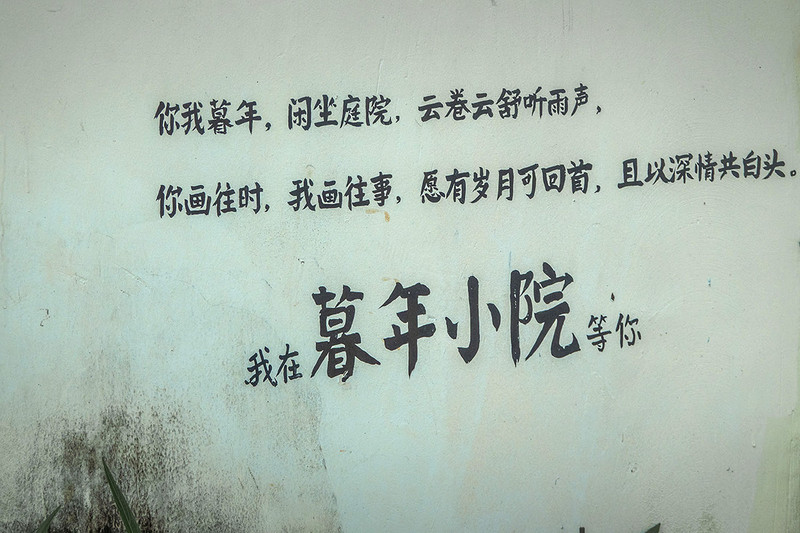 你我暮年，闲坐庭院，云卷云舒听雨声，
你画往时，我画往事，愿有岁月可回首，且以深情共白头。
我在暮年小院等你